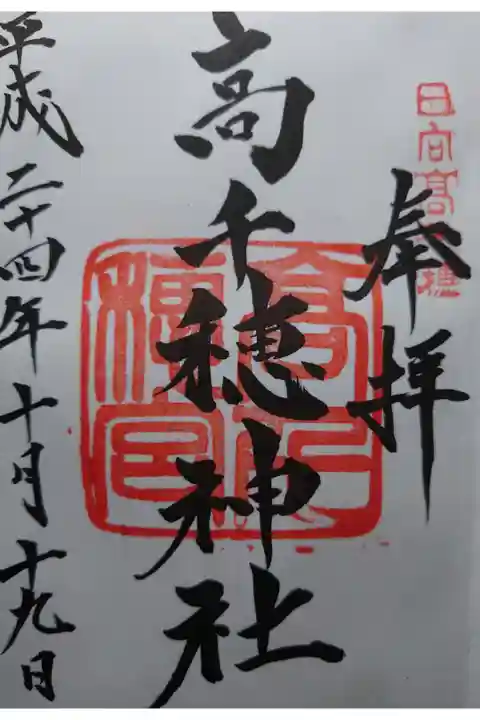 日向高千穂
奉拝
高千穂神社
平成二十四年十月十九日